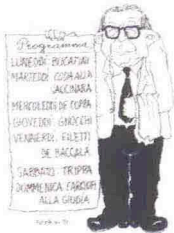 Programma
LUNEDI: BUCATINI
MARTEDI: CODA ALLA
VACCINARA
MERCOLEDI: DE COPPA
GIOVEDI: GNOCCHI
VENNERDI: FILETTI
DE BACCALÀ
SABBATO: TRIPPA
DOMMENICA: CARCIOFI
ALLA GIUDIA